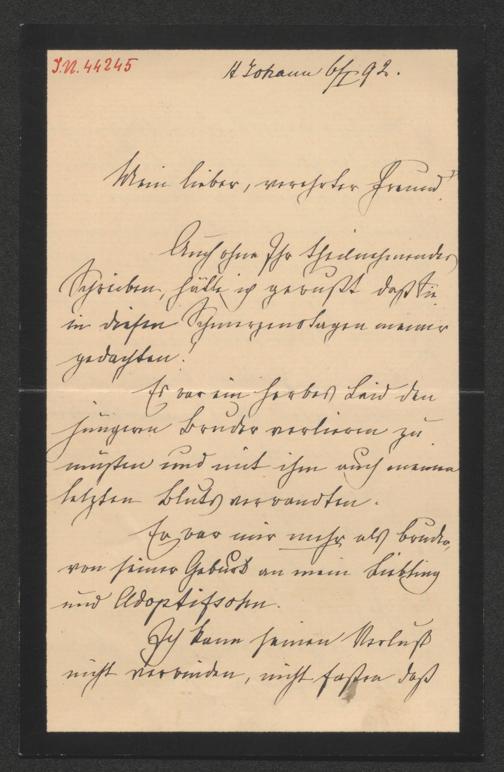 J.N. 44245
St Johann 6/I 92.
Mein lieber, verehrter Freund!
Auch ohne Ihr theilnehmendes
Schreiben, hätte ich gewußt daß Sie
in diesen Schmerzenstagen meiner
gedachten!
Es war ein herbes Leid den
jüngeren Bruder verlieren zu
müssen und mit ihm auch meinen
letzten Blutsverwandten.
Er war mir mehr als Bruder,
von seiner Geburt an mein Liebling
und Adoptifsohn.
Ich kann seinen Verlust
nicht verwinden, nicht fassen daß